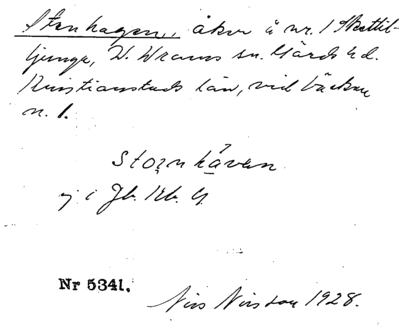 Stenhagen, åker å nr. 1 Skättil-
ljunga, V. Wrams sn. Gärds hd.
Kristianstads län, vid bäcken
n. 1.
stoṛnhāven
ej i Jb. Kb. G.
Nr 5341.
Nils Nilsson 1928.